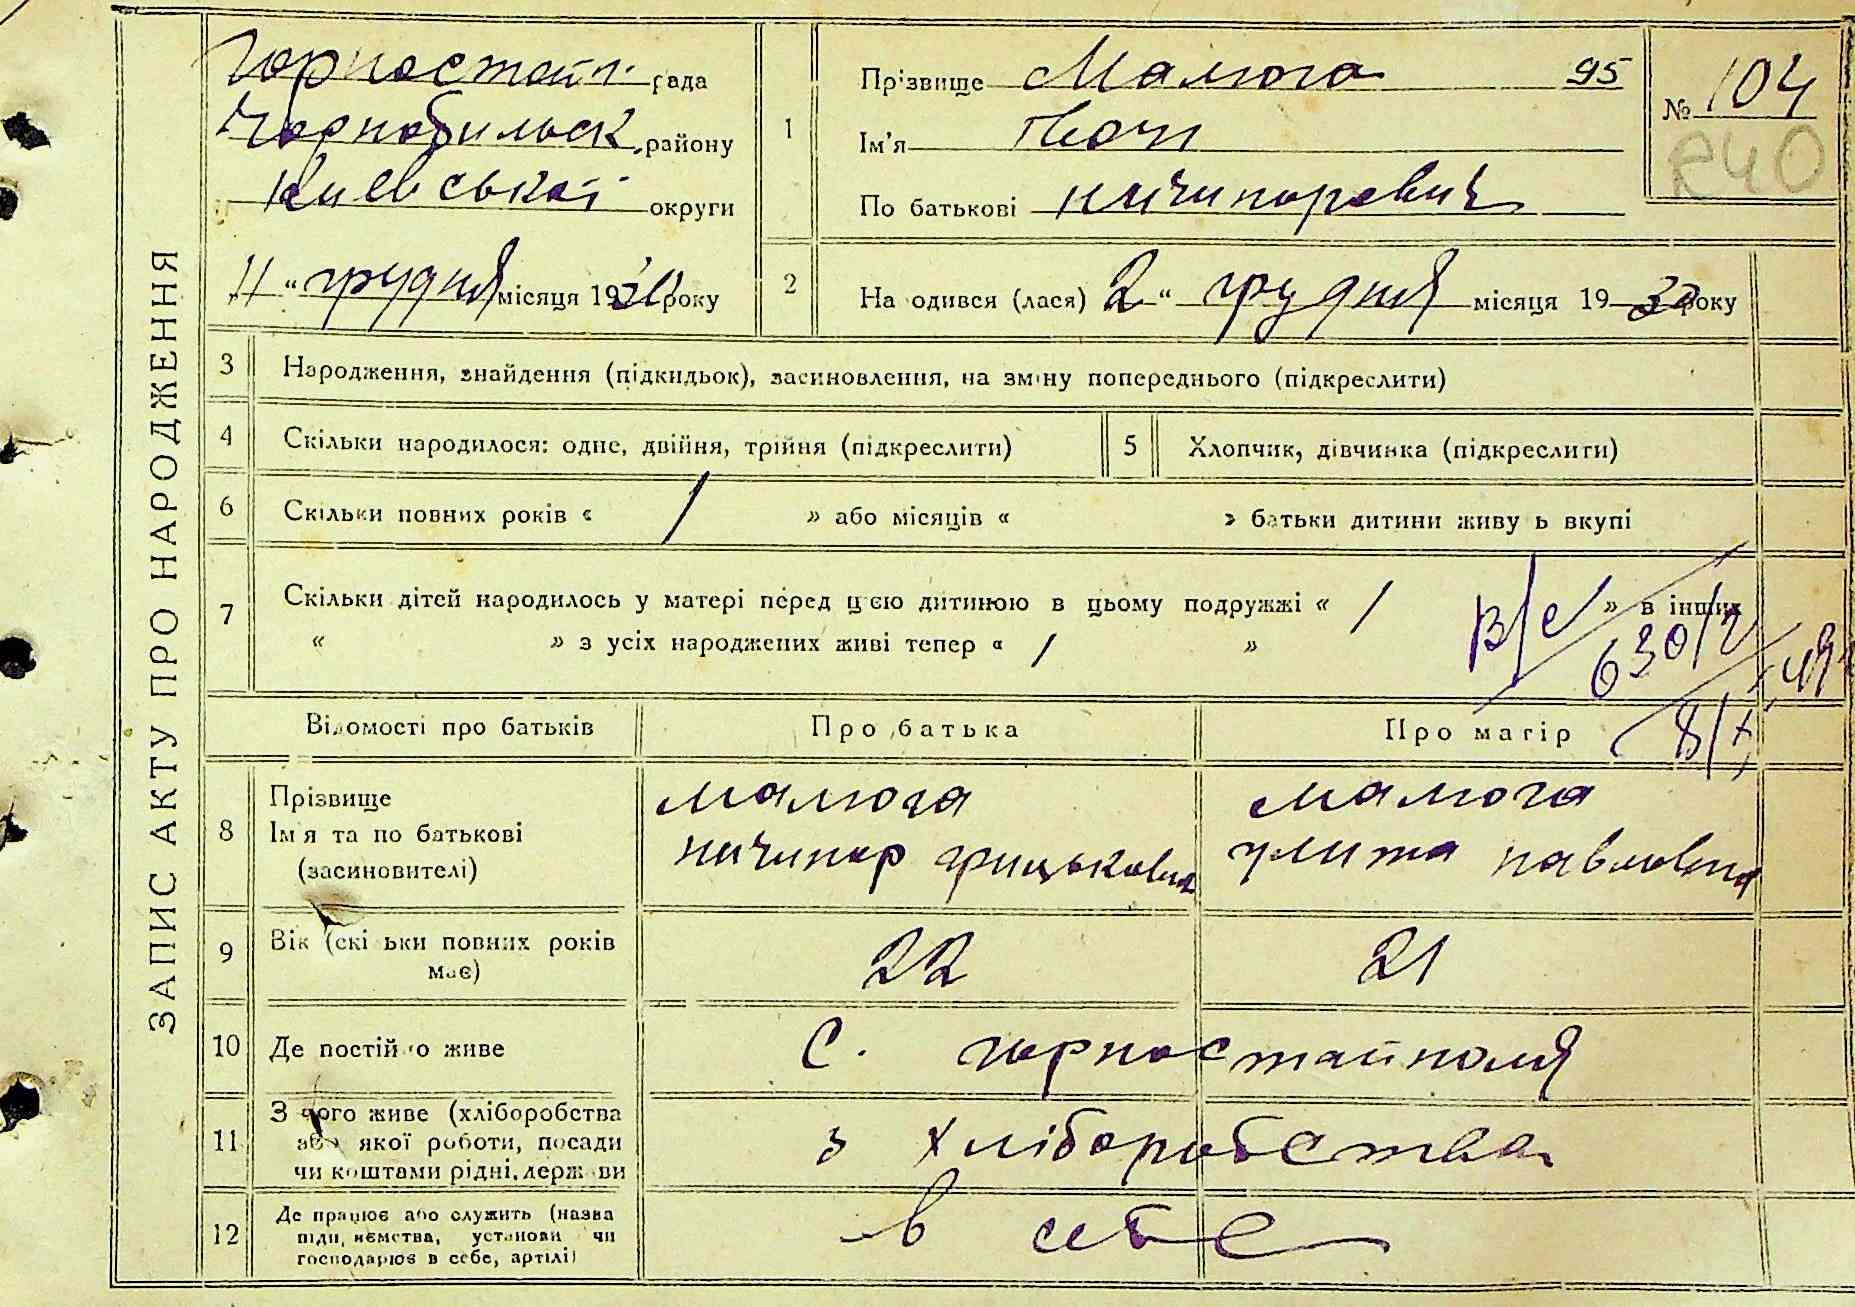 ЗАПИС АКТУ ПРО НАРОДЖЕННЯ
Горностайп. рада
Чорнобильськ. району
Київської округи
11 " грудня місяця 1930 року
1
Прізвище Малюга 95
Ім'я Іван
По батькові Ничипорович
№ 104
R40
2
На одився (лася) 2 " грудня місяця 1930 року
3 Народження, знайдення (підкидьок), засиновлення, на зміну попереднього (підкреслити)
4 Скільки народилося: одне, двійня, трійня (підкреслити)
5 Хлопчик, дівчинка (підкреслити)
6 Скільки повних років « / » або місяців « » батьки дитини живу ь вкупі
7 Скільки дітей народилось у матері перед цією дитиною в цьому подружжі « / » в інших
« » з усіх народжених живі тепер « / »
630/2
Відомості про батьків Про батька Про матір
8 Прізвище
Ім'я та по батькові
(засиновителі)
малюга
ничипор грицькович
малюга
улита павловна
9 Вік (скі ьки повних років
має)
22 21
10 Де постій о живе
с. горностайполя
11 З чого живе (хліборобства
або якої роботи, посади
чи коштами рідні, держ ви
з хліборобства
12 Де працює або служить (назва
підп, иємства, установи чи
господарює в себе, артілі)
в себе